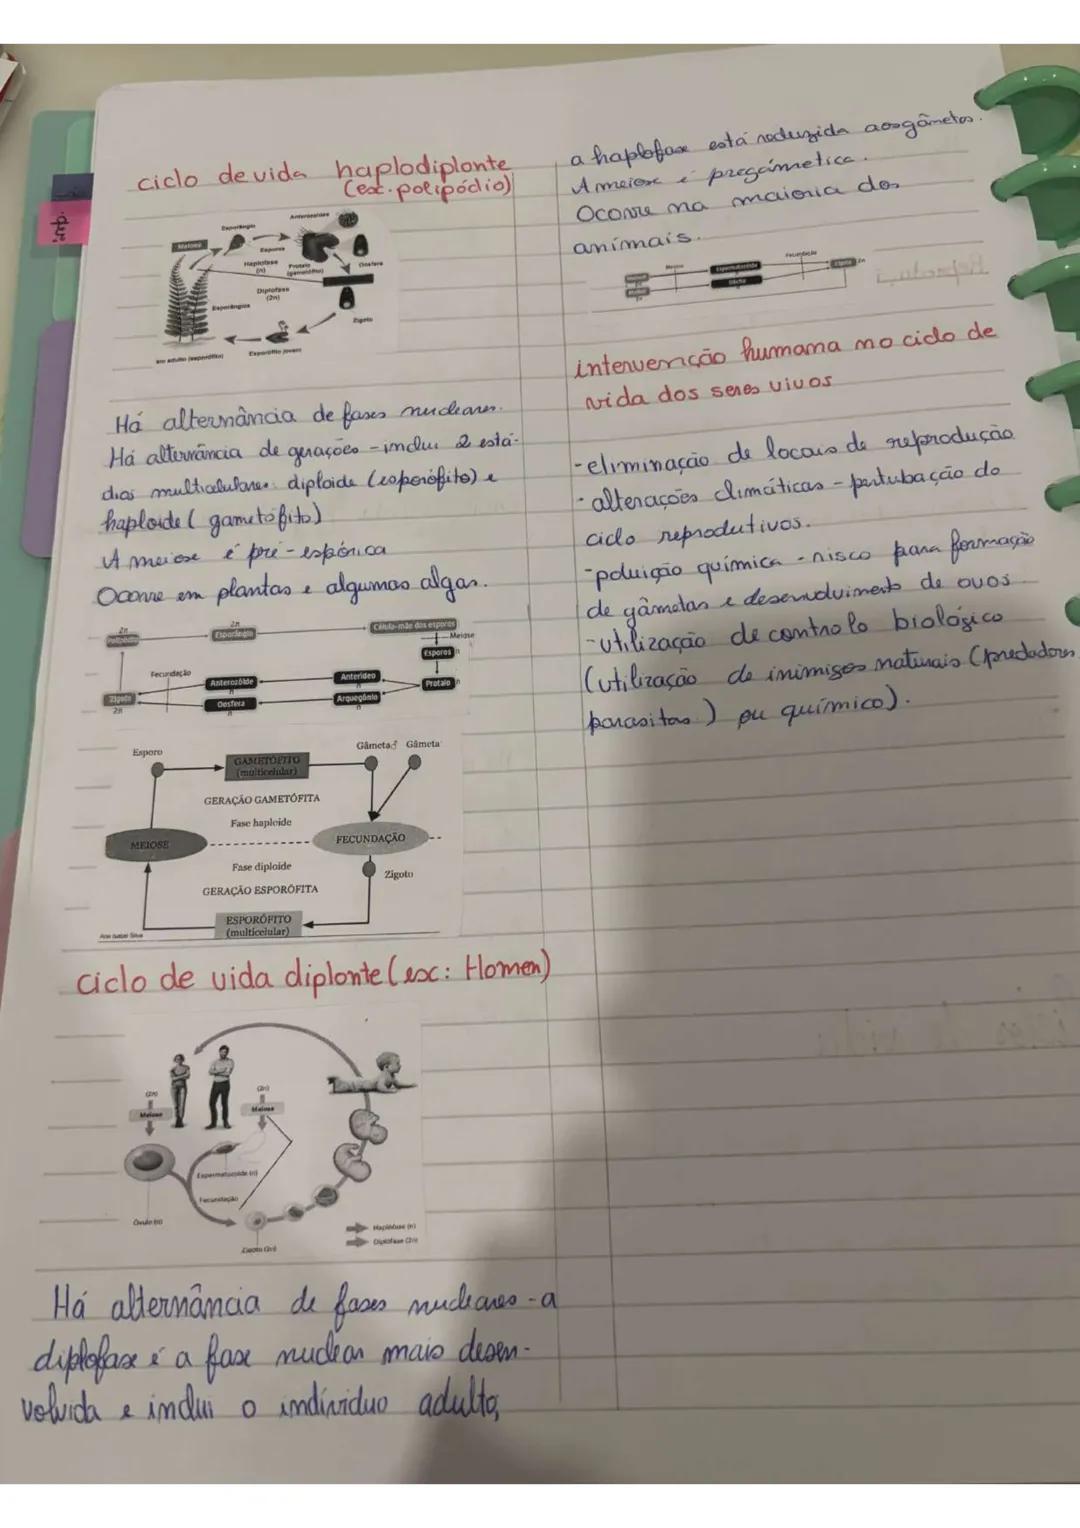 ciclo de vida haplodiplonte
(ex. polipódio)
Anterozoides
Esporângio
Meiose
Esporos
Haplofase
(n)
Protalo
(gametófito)
Oosfera
Diplofase
(2n)
Esporângios
Zigoto
adulto (esporófito)
Esporófito jovem
Há alternância de fases nucleares.
Há alternância de gerações - inclui 2 está-
dios multicelulares: diploide (esporófito) e
haploide (gametófito)
A meiose é pré-espórica
Ocorre em plantas e algumas algas.
2n
Polipódio
2n
Esporângio
Célula-mãe dos esporos
Meiose
Esporos n
Fecundação
Anterozóide
n
Anterídeo
n
Protalo n
Zigoto
2n
Oosfera
n
Arquegónio
n
Esporo
GAMETÓFITO
(multicelular)
Gâmeta♂ Gâmeta
GERAÇÃO GAMETÓFITA
Fase haploide
MEIOSE
FECUNDAÇÃO
Fase diploide
Zigoto
GERAÇÃO ESPORÓFITA
ESPORÓFITO
(multicelular)
Ana Isabel Silva
ciclo de vida diplonte (ex: Homem)
(2n)
Meiose
(2n)
Meiose
Espermatozoide (n)
Fecundação
Óvulo (n)
Zigoto (2n)
Haplofase (n)
Diplofase (2n)
Há alternância de fases nucleares - a
diplofase é a fase nuclear mais desen-
volvida e inclui o indivíduo adulto,
a haplofase está reduzida aos gâmetas.
A meiose é pregâmetica.
Ocorre na maioria dos
animais.
Meiose
Espermatozóide
Fecundação
Zigoto 2n
Oócito
intervenção humana no ciclo de
vida dos seres vivos
-eliminação de locais de reprodução
-alterações climáticas - pertubação do
ciclo reprodutivos.
-poluição química - risco para formação
de gâmetas e desenvolvimento de ovos
-utilização de controlo biológico
(utilização de inimigos naturais (predadores
parasitas) ou químico).